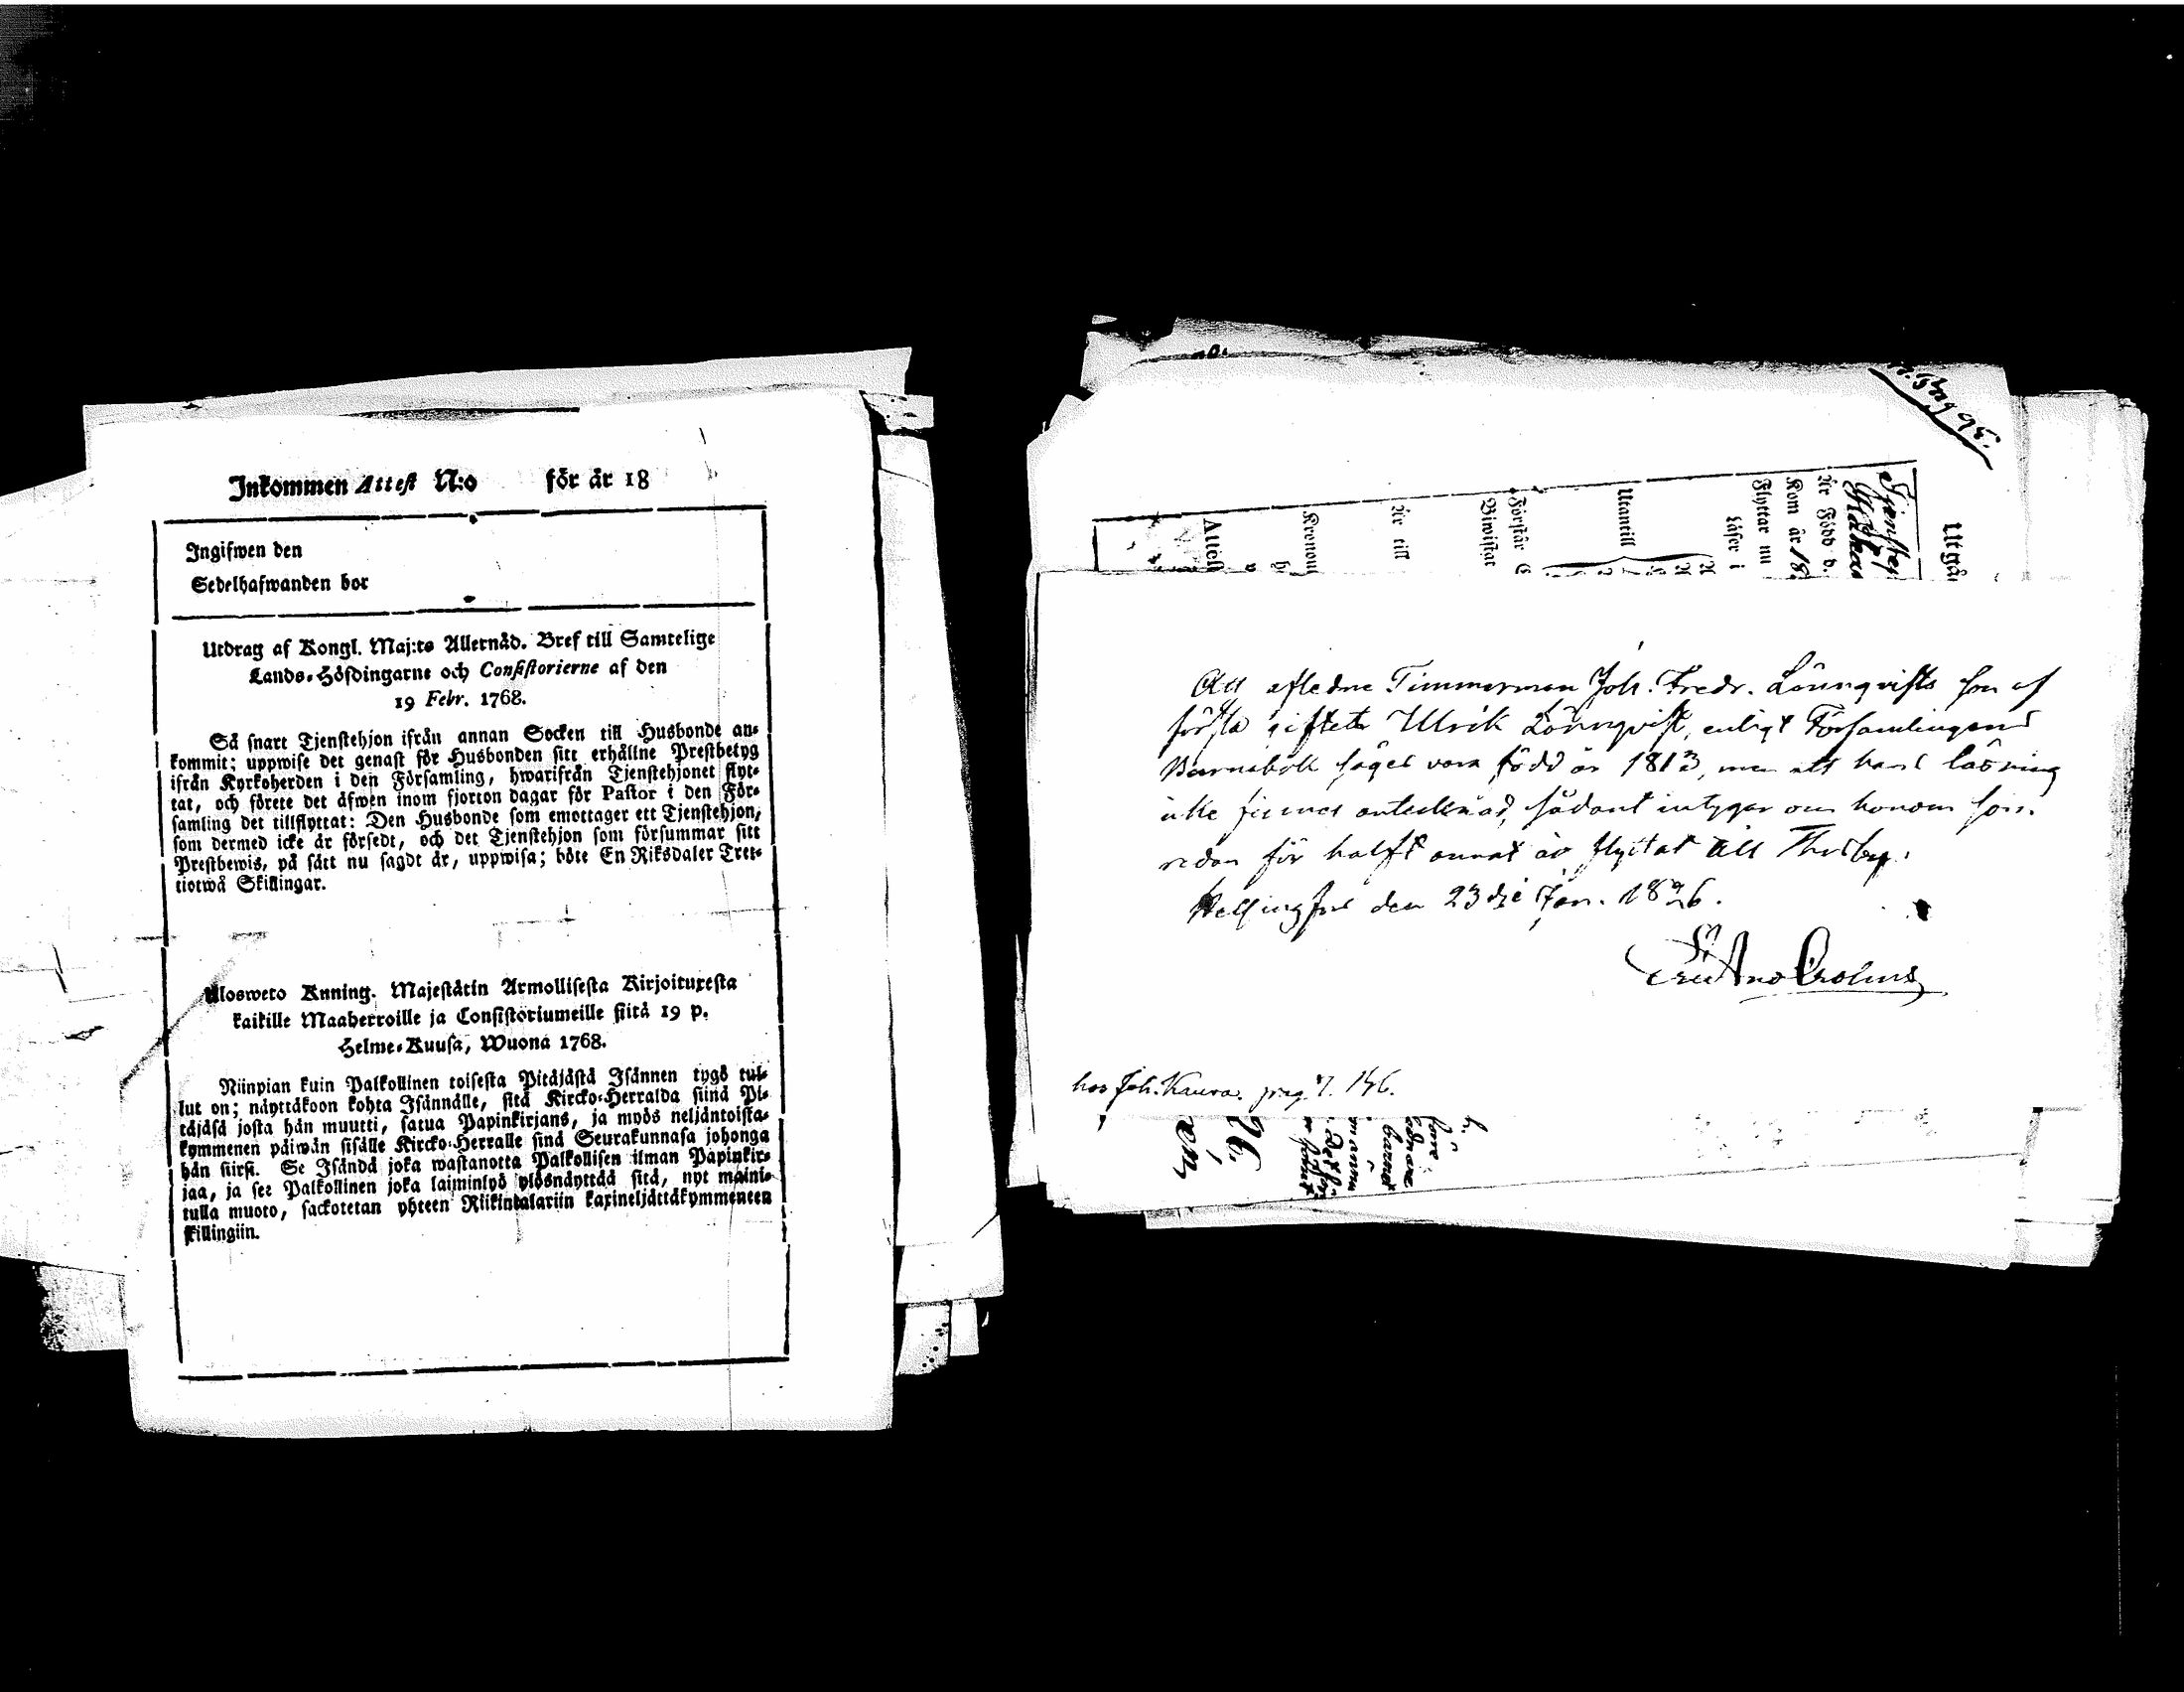 Inkommen Attest N:o för år 18
Ingifwen den
Sedelhafwanden bor
Utdrag af Kongl. Maj:ts Allernåd. Bref till Samtelige
Lands-Höfdingarne och Consistorierne af den
19 Febr. 1768.
Så snart Tjenstehjon ifrån annan Socken till Husbonde an-
kommit; uppwise det genast för Husbonden sitt erhållne Prestbetyg
ifrån Kyrkoherden i den Församling, hwarifrån Tjenstehjonet flyt-
tat, och förete det äfwen inom fjorton dagar för Pastor i den För-
samling det tillflyttat: Den Husbonde som emottager ett Tjenstehjon,
som dermed icke är försedt, och det Tjenstehjon som försummar sitt
Prestbewis, på sätt nu sagdt är, uppwisa; böte En Riksdaler Tret-
tiotwå Skillingar.
Ulosweto Kuning. Majestätin Armollisesta Kirjoituxesta
kaikille Maaherroille ja Consistoriumeille siitä 19 p.
Helme-Kuusa, Wuona 1768.
Niinpian kuin Palkollinen toisesta Pitäjästä Isännen tygö tul-
lut on; näyttäkoon kohta Isännälle, sitä Kircko-Herralda siinä Pi-
täjäsä josta hän muutti, satua Papinkirjans, ja myös neljäntoista-
kymmenen päiwän sisälle Kircko-Herralle sinä Seurakunnasa johonga
hän siirsi. Se Isändä joka wastanotta Palkollisen ilman Papinkir-
jaa, ja see Palkollinen joka laiminlyö ylösnäyttää sitä, nyt maini-
tulla muoto, sackotetan yhteen Riikintalariin kaxineljättäkymmeneen
skillingiin.
Utgå
Tjenstep
År Född d.
Kom år 18
Flyttar nu
Läser i
Utantill
Förstår C
Biwistat
Är till
Kronom
Attest
Att afledne Timmerman Joh. Fredr. Lönnqvists son af
första giftet Ulrik Lönnqvist, enligt Församlingens
Barnabok säges vara född år 1813, men att hans läsning
icke finnes antecknad, sådant intygar om honom som
redan för halft annat år flyttat till Thusby.
Helsingfors den 23dje Jan. 1826.
hos Joh. Kaura. pag. 146.
26.